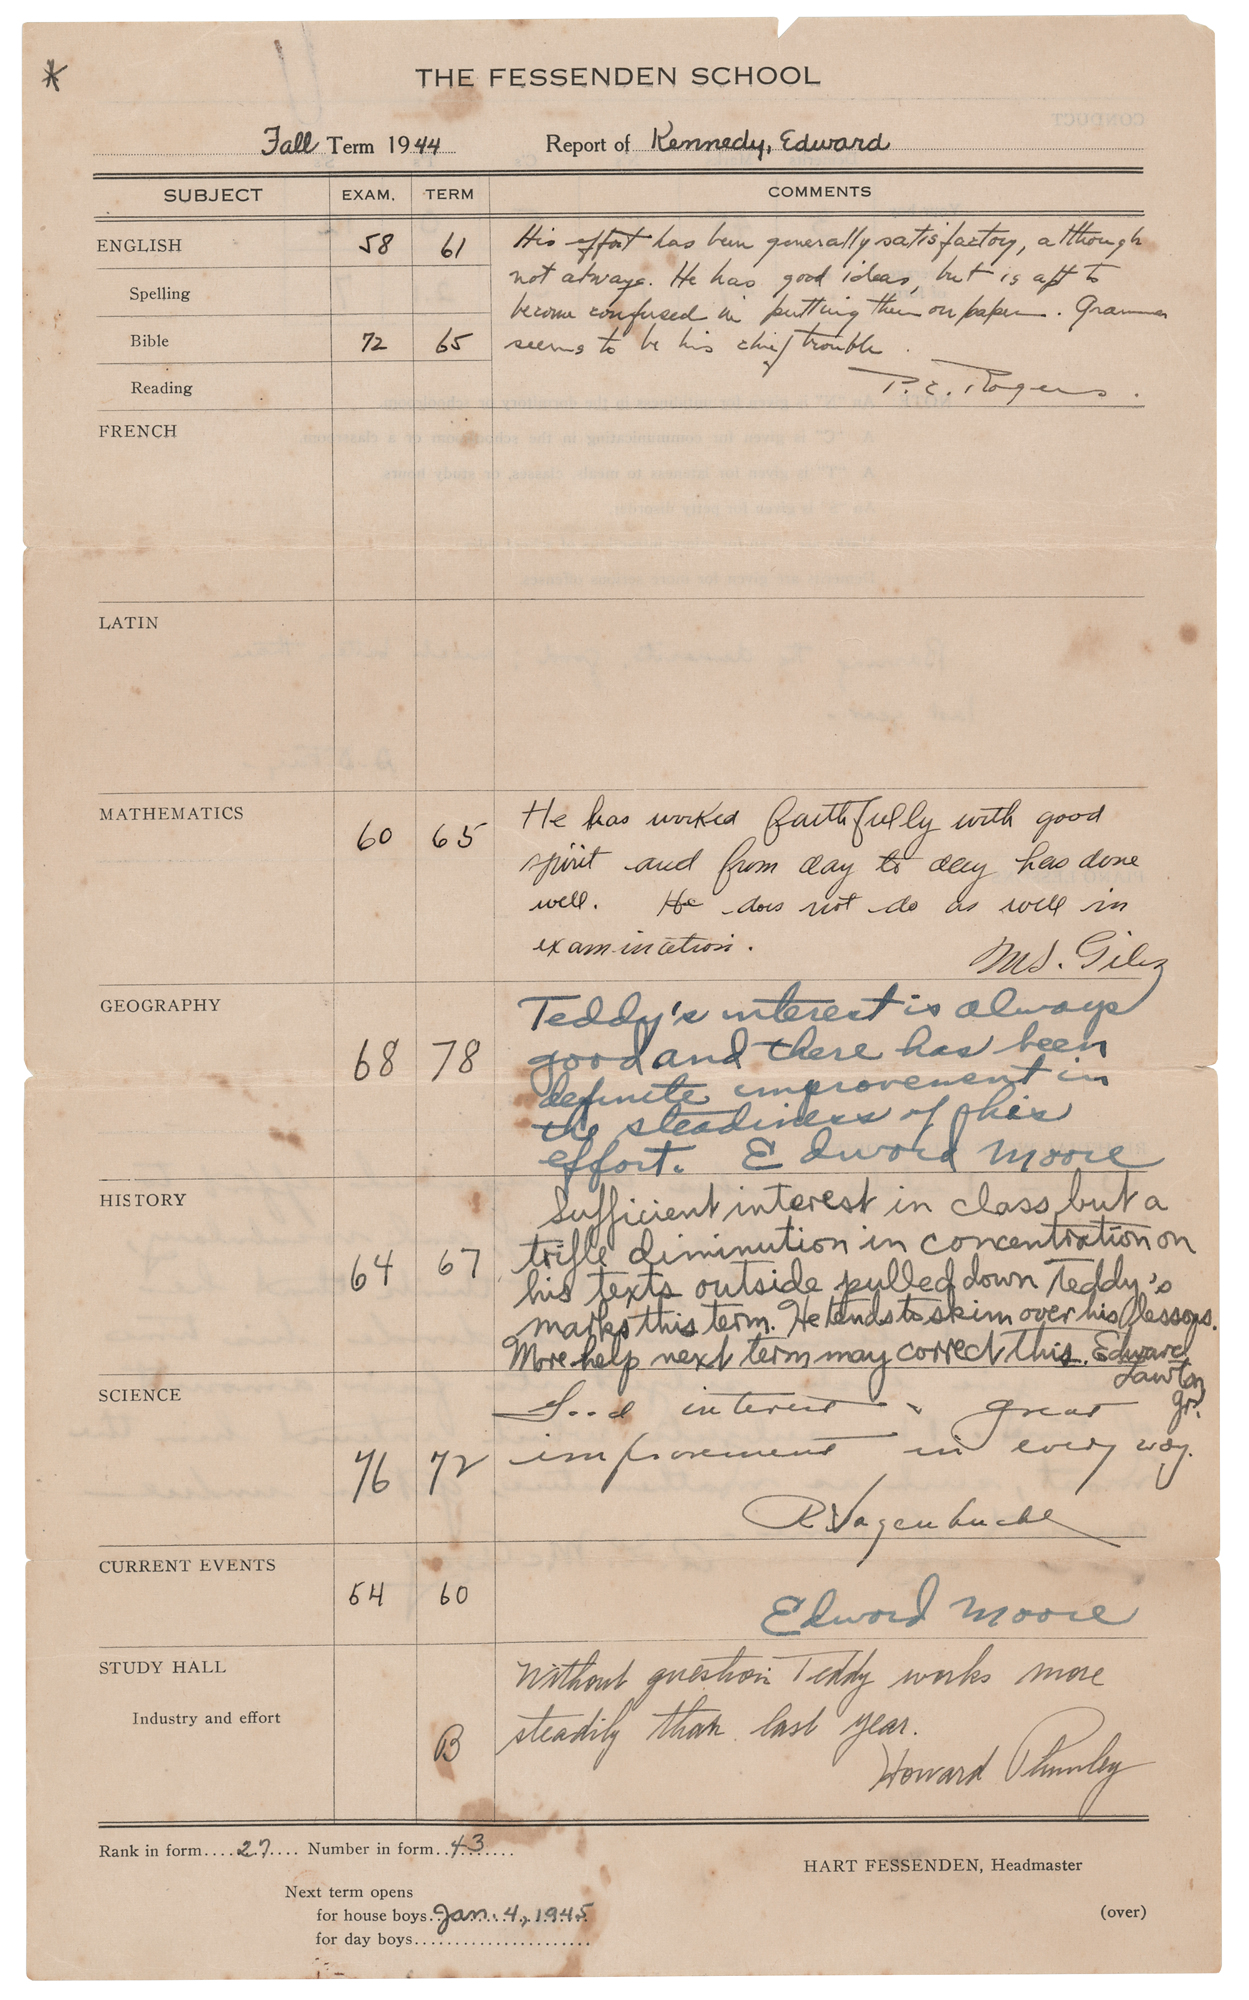 THE FESSENDEN SCHOOL
Fall Term 1944 Report of Kennedy, Edward
SUBJECT EXAM. TERM COMMENTS
ENGLISH 58 61 His effort has been generally satisfactory, although
not always. He has good ideas, but is apt to
Spelling
become confused in putting them on paper. Grammar
Bible 72 65 seems to be his chief trouble.
Reading P. E. Rogers.
FRENCH
LATIN
MATHEMATICS 60 65 He has worked faithfully with good
spirit and from day to day has done
well. He does not do as well in
examination.
GEOGRAPHY 68 78 Teddy's interest is always
good and there has been
definite improvement in
the steadiness of his
effort. Edward Moore
HISTORY 64 67 Sufficient interest in class but a
trifle diminution in concentration on
his texts outside pulled down Teddy's
marks this term. He tends to skim over his lessons.
More help next term may correct this. Edward
Lawton
Jr.
SCIENCE 76 72 Good interest & great
improvement in every way.
CURRENT EVENTS 54 60
Edward Moore
STUDY HALL Without question Teddy works more
Industry and effort B steadily than last year.
Howard Plumley
Rank in form....27.... Number in form..43......
HART FESSENDEN, Headmaster
Next term opens
for house boys..Jan. 4, 1945
for day boys......................
(over)